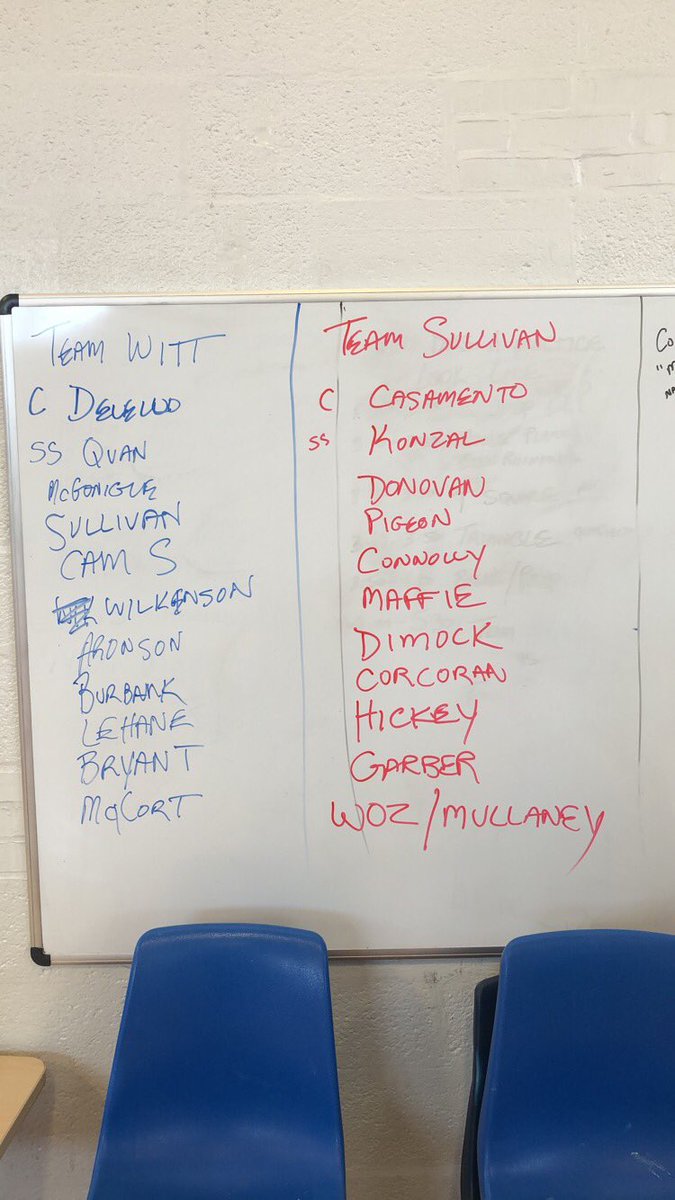 TEAM WITT
C DELELLO
SS QUAN
McGONIGLE
SULLIVAN
CAM S
WILKENSON
ARONSON
BURBANK
LEHANE
BRYANT
McCORT
TEAM SULLIVAN
C CASAMENTO
SS KONZAL
DONOVAN
PIGEON
CONNOLLY
MAFFIE
DIMOCK
CORCORAN
HICKEY
GARBER
WOZ/MULLANEY
CO